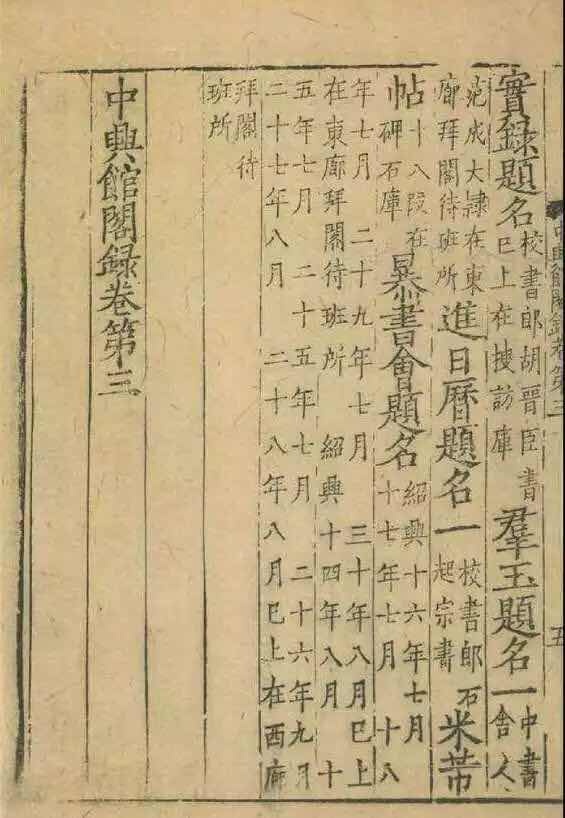 中興館閣録卷第三
五
實録題名校書郎胡晉臣書巳上在搜訪庫羣玉題名一中書舍人
范成大隷在東廊拜閣待班所進日曆題名一校書郎石起宗書米芾
帖十八段在碑石庫暴書會題名紹興十六年七月十七年七月 十八
年七月 二十九年七月 三十年八月巳上在東廊拜閣待班所 紹興十四年八月 十
五年七月 二十五年七月 二十六年九月二十七年八月 二十八年八月巳上在西廊
拜閣待班所
中興館閣録卷第三